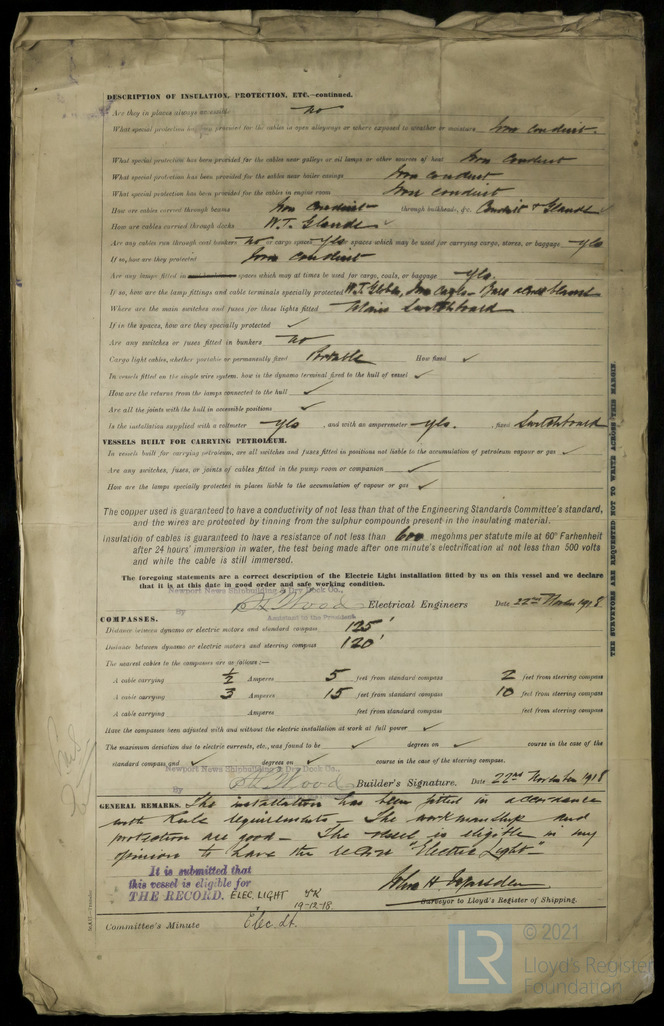 DESCRIPTION OF INSULATION, PROTECTION, ETC.—continued.
Are they in places always accessible no
What special protection has been provided for the cables in open alleyways or where exposed to weather or moisture Iron conduit.
What special protection has been provided for the cables near galleys or oil lamps or other sources of heat Iron conduit
What special protection has been provided for the cables near boiler casings Iron conduit
What special protection has been provided for the cables in engine room Iron conduit
How are cables carried through beams Iron Conduit through bulkheads, &c. Conduit & Glands ✓
How are cables carried through decks W.T. Glands ✓
Are any cables run through coal bunkers no or cargo spaces yes or spaces which may be used for carrying cargo, stores, or baggage yes
If so, how are they protected Iron conduit
Are any lamps fitted in spaces which may at times be used for cargo, coals, or baggage yes.
If so, how are the lamp fittings and cable terminals specially protected W.T. Globes, Iron
Where are the main switches and fuses for these lights fitted Main Switchboard
If in the spaces, how are they specially protected ✓
Are any switches or fuses fitted in bunkers no
Cargo light cables, whether portable or permanently fixed Portable How fixed ✓
In vessels fitted on the single wire system, how is the dynamo terminal fixed to the hull of vessel ✓
How are the returns from the lamps connected to the hull ✓
Are all the joints with the hull in accessible positions ✓
Is the installation supplied with a voltmeter yes, and with an amperemeter yes., fixed Switchboard
VESSELS BUILT FOR CARRYING PETROLEUM.
In vessels built for carrying petroleum, are all switches and fuses fitted in positions not liable to the accumulation of petroleum vapour or gas ✓
Are any switches, fuses, or joints of cables fitted in the pump room or companion ✓
How are the lamps specially protected in places liable to the accumulation of vapour or gas ✓
The copper used is guaranteed to have a conductivity of not less than that of the Engineering Standards Committee's standard,
and the wires are protected by tinning from the sulphur compounds present in the insulating material.
Insulation of cables is guaranteed to have a resistance of not less than 600 megohms per statute mile at 60° Farhenheit
after 24 hours' immersion in water, the test being made after one minute's electrification at not less than 500 volts
and while the cable is still immersed.
The foregoing statements are a correct description of the Electric Light installation fitted by us on this vessel and we declare
that it is at this date in good order and safe working condition.
Newport News Shipbuilding & Dry Dock Co.,
By Wood Electrical Engineers Date 22nd November 1918
Assistant to the President
COMPASSES.
Distance between dynamo or electric motors and standard compass 125'
Distance between dynamo or electric motors and steering compass 120'
The nearest cables to the compasses are as follows:—
A cable carrying ½ Amperes 5 feet from standard compass 2 feet from steering compass
A cable carrying 3 Amperes 15 feet from standard compass 10 feet from steering compass
A cable carrying Amperes feet from standard compass feet from steering compass
Have the compasses been adjusted with and without the electric installation at work at full power ✓
The maximum deviation due to electric currents, etc., was found to be ✓ degrees on ✓ course in the case of the
standard compass and ✓ degrees on ✓ course in the case of the steering compass.
Newport News Shipbuilding & Dry Dock Co.,
By Wood Builder's Signature. Date 22nd November 1918
GENERAL REMARKS. The installation has been fitted in accordance
with Rule requirements – The workmanship and
protection are good – The vessel is eligible in my
opinion to have the record "Electric Light"
It is submitted that
this vessel is eligible for
THE RECORD. ELEC. LIGHT
19-12-18.
John H
Surveyor to Lloyd's Register of Shipping.
Committee's Minute Elec Lt.
THE SURVEYORS ARE REQUESTED NOT TO WRITE ACROSS THIS MARGIN.
LR
© 2021
Lloyd's Register
Foundation